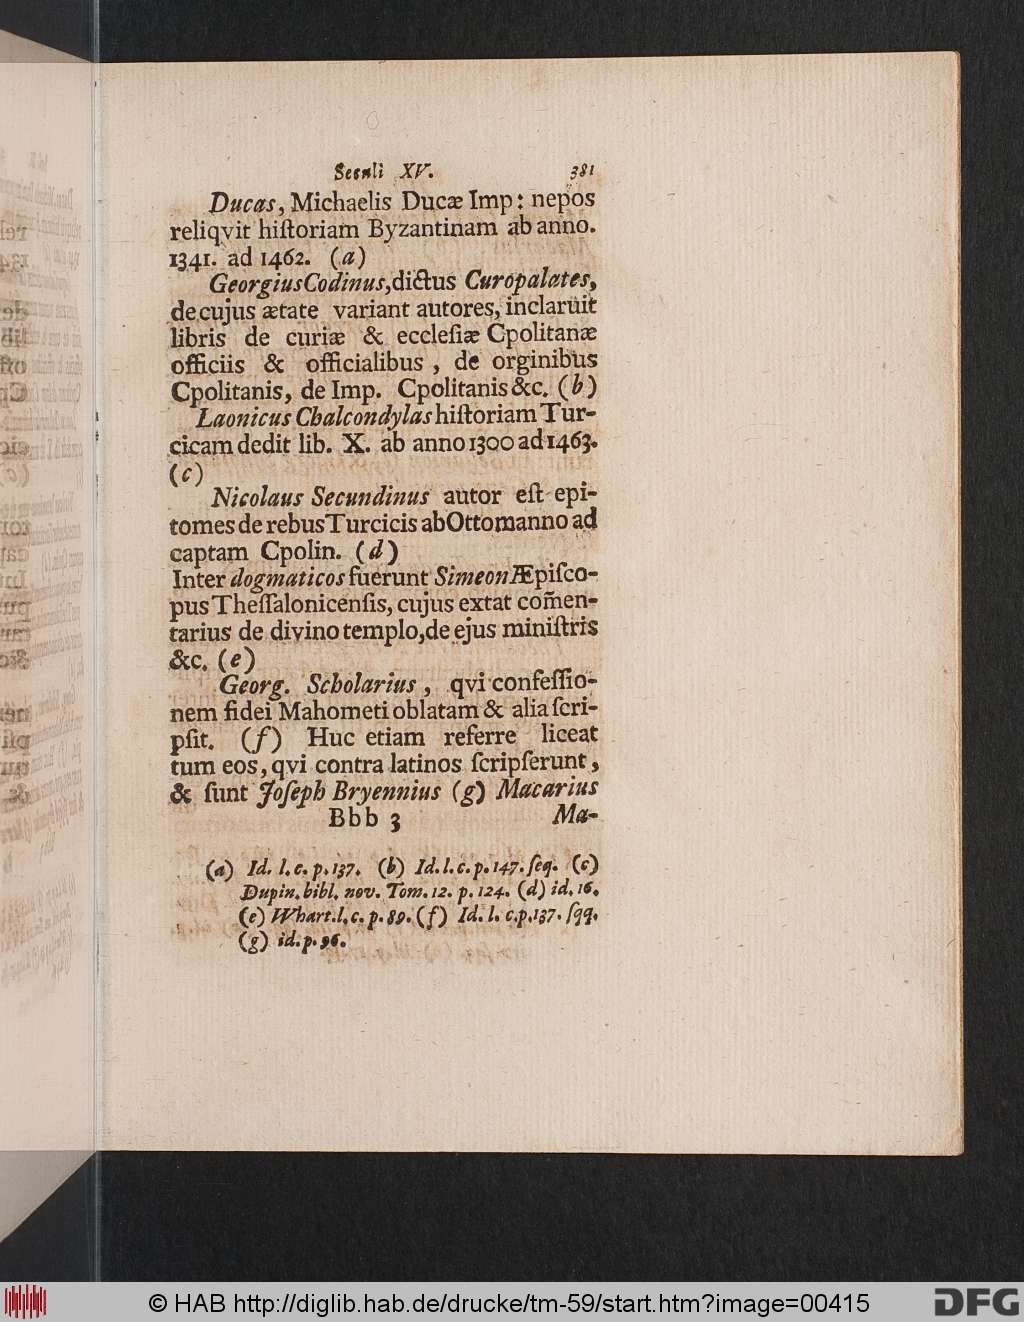 Seculi XV. 381
Ducas, Michaelis Ducæ Imp: nepos
reliqvit hiſtoriam Byzantinam ab anno.
1341. ad 1462. (a)
Georgius Codinus, dictus Curopalates,
de cujus ætate variant autores, inclaruit
libris de curiæ & eccleſiæ Cpolitanæ
officiis & officialibus, de orginibus
Cpolitanis, de Imp. Cpolitanis &c. (b)
Laonicus Chalcondylas hiſtoriam Tur-
cicam dedit lib. X. ab anno 1300 ad 1463.
(c)
Nicolaus Secundinus autor eſt epi-
tomes de rebus Turcicis ab Ottomanno ad
captam Cpolin. (d)
Inter dogmaticos fuerunt Simeon Æpiſco-
pus Theſſalonicenſis, cujus extat com̃en-
tarius de divino templo, de ejus miniſtris
&c. (e)
Georg. Scholarius, qvi confeſſio-
nem fidei Mahometi oblatam & alia ſcri-
pſit. (f) Huc etiam referre liceat
tum eos, qvi contra latinos ſcripſerunt,
& ſunt Joſeph Bryennius (g) Macarius
Bbb 3 Ma-
(a) Id. l. c. p. 137. (b) Id. l. c. p. 147. ſeq. (c)
Dupin. bibl. nov. Tom. 12. p. 124. (d) id. 16.
(e) Whart. l. c. p. 89. (f) Id. l. c. p. 137. ſqq.
(g) id. p. 96.
© HAB http://diglib.hab.de/drucke/tm-59/start.htm?image=00415
DFG